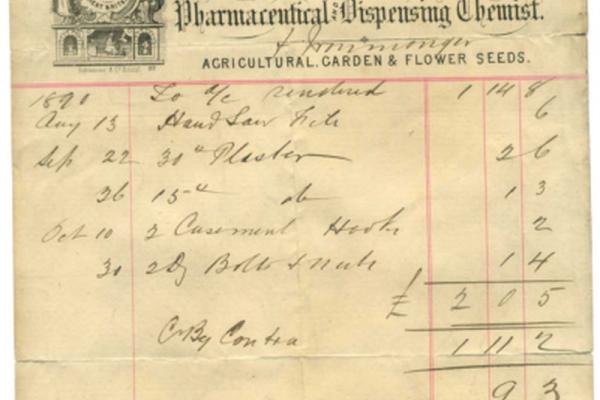 Pharmaceutical and Dispensing Chemist.
& Ironmonger
AGRICULTURAL. GARDEN & FLOWER SEEDS.
1890 To a/c rendered 1 14 8
Aug 13 Hand Saw File 6
Sep 22 30 Plaster 2 6
26 15 do 1 3
Oct 10 2 Casement Hooks 2
30 2 Dz Bolts & Nuts 1 4
£ 2 0 5
Cr By Contra 1 11 2
9 3